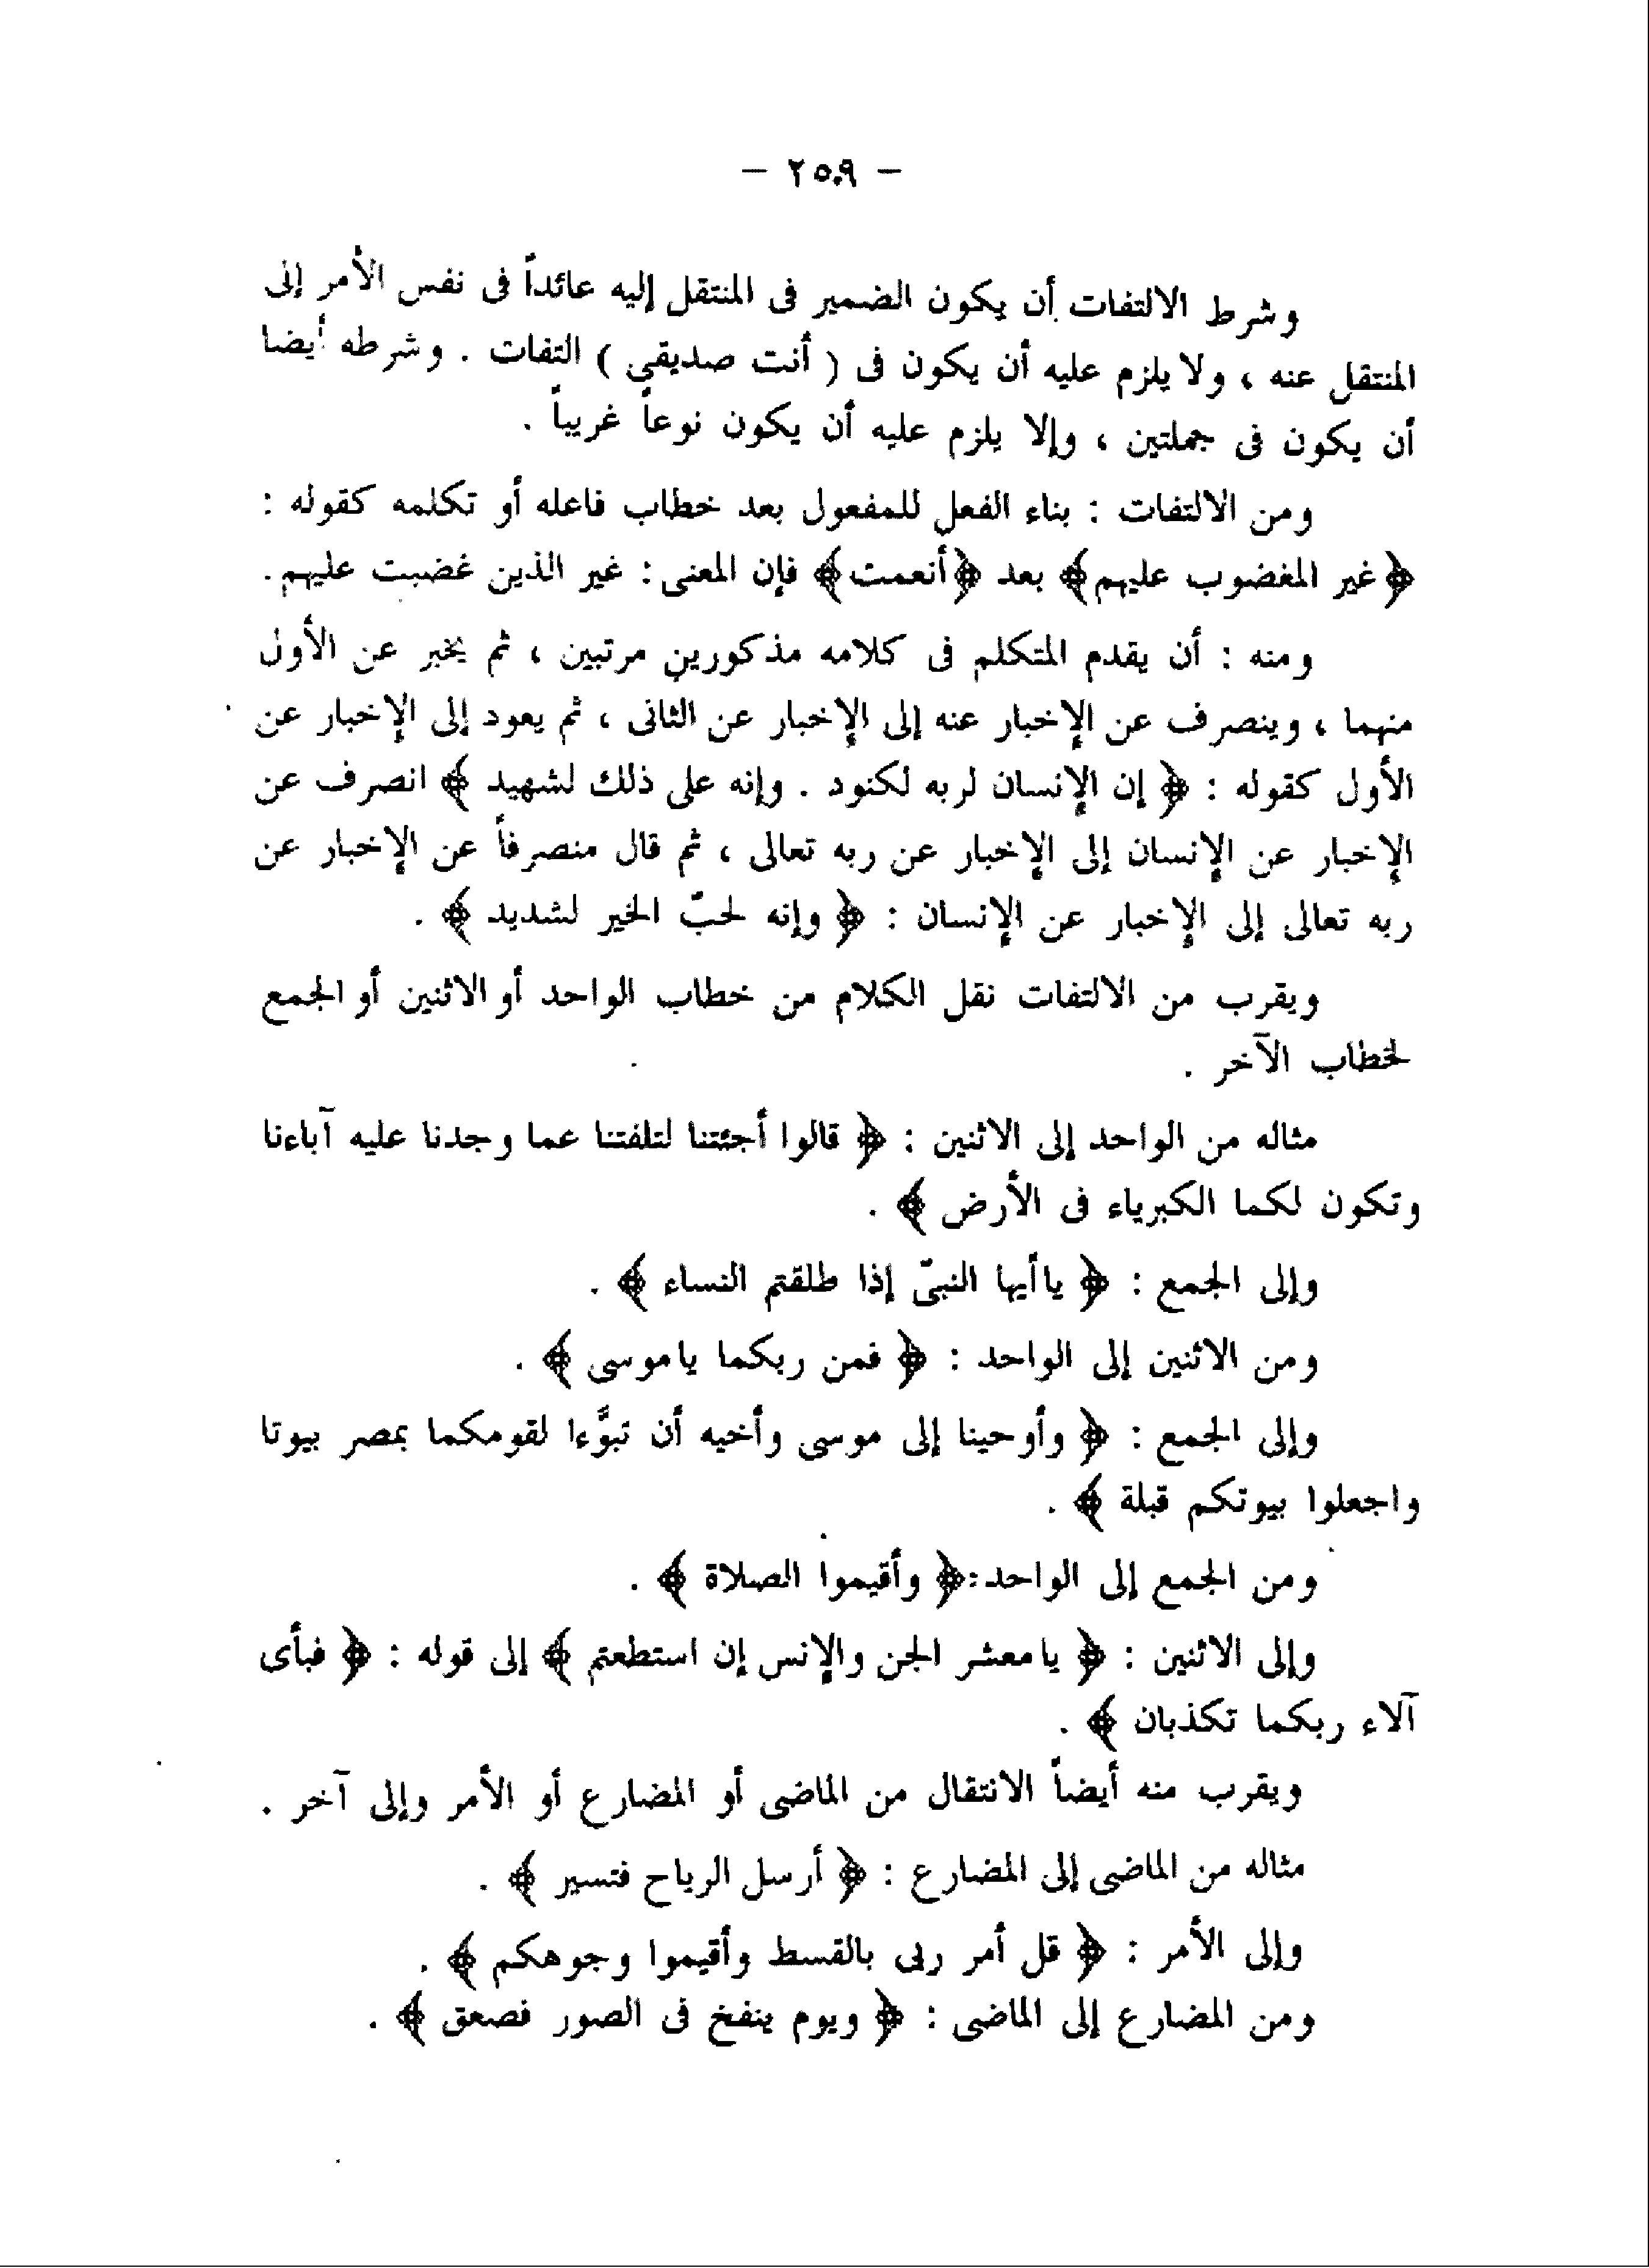 - ٢٥٩ -
وشرط الالتفات أن يكون الضمير فى المنتقل إليه عائداً فى نفس الأمر إلى
المنتقل عنه ، ولا يلزم عليه أن يكون فى ( أنت صديقى ) التفات . وشرطه أيضا
أن يكون فى جملتين ، وإلا يلزم عليه أن يكون نوعاً غريباً .
ومن الالتفات : بناء الفعل للمفعول بعد خطاب فاعله أو تكلمه كقوله :
﴿غير المغضوب عليهم﴾ بعد ﴿أنعمت﴾ فإن المعنى : غير الذين غضبت عليهم.
ومنه : أن يقدم المتكلم فى كلامه مذكورين مرتبين ، ثم يخبر عن الأول
منهما ، وينصرف عن الإخبار عنه إلى الإخبار عن الثانى ، ثم يعود إلى الإخبار عن
الأول كقوله : ﴿ إن الإنسان لربه لكنود . وإنه على ذلك لشهيد ﴾ انصرف عن
الإخبار عن الإنسان إلى الإخبار عن ربه تعالى ، ثم قال منصرفاً عن الإخبار عن
ربه تعالى إلى الإخبار عن الإنسان : ﴿ وإنه لحبّ الخير لشديد ﴾ .
ويقرب من الالتفات نقل الكلام من خطاب الواحد أو الاثنين أو الجمع
لخطاب الآخر .
مثاله من الواحد إلى الاثنين : ﴿ قالوا أجئتنا لتلفتنا عما وجدنا عليه آباءنا
وتكون لكما الكبرياء فى الأرض ﴾ .
وإلى الجمع : ﴿ ياأيها النبىّ إذا طلقتم النساء ﴾ .
ومن الاثنين إلى الواحد : ﴿ فمن ربكما ياموسى ﴾ .
وإلى الجمع : ﴿ وأوحينا إلى موسى وأخيه أن تبوَّءا لقومكما بمصر بيوتا
واجعلوا بيوتكم قبلة ﴾ .
ومن الجمع إلى الواحد:﴿ وأقيموا الصلاة ﴾ .
وإلى الاثنين : ﴿ يامعشر الجن والإنس إن استطعتم ﴾ إلى قوله : ﴿ فبأى
آلاء ربكما تكذبان ﴾ .
ويقرب منه أيضاً الانتقال من الماضى أو المضارع أو الأمر وإلى آخر .
مثاله من الماضى إلى المضارع : ﴿ أرسل الرياح فتسير ﴾ .
وإلى الأمر : ﴿ قل أمر ربى بالقسط وأقيموا وجوهكم ﴾ .
ومن المضارع إلى الماضى : ﴿ ويوم ينفخ فى الصور فصعق ﴾ .